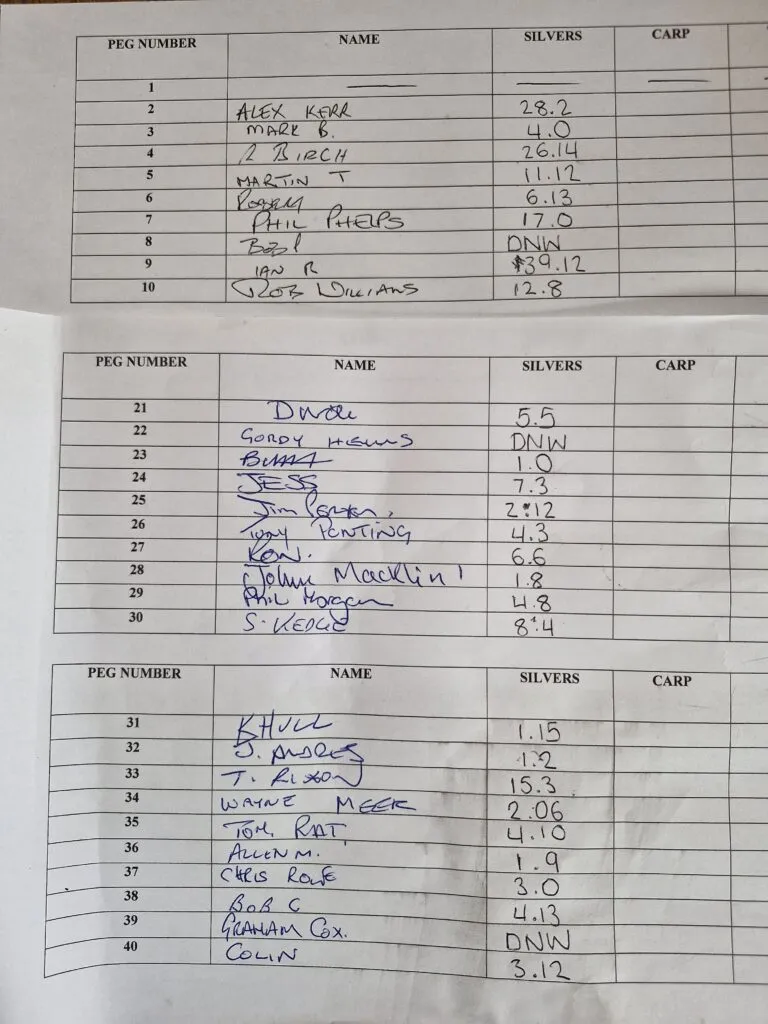 PEG NUMBER NAME SILVERS CARP
1 — — —
2 ALEX KERR 28.2
3 MARK B. 4.0
4 R BIRCH 26.14
5 MARTIN T 11.12
6 6.13
7 PHIL PHELPS 17.0
8 BOB P DNW
9 IAN R 39.12
10 ROB WILLIAMS 12.8
PEG NUMBER NAME SILVERS CARP
21 5.5
22 GORDY DNW
23 1.0
24 JESS 7.3
25 Jim 2:12
26 Tony PONTING 4.3
27 RON. 6.6
28 John Macklin 1.8
29 Phil Morgan 4.8
30 S. KEDGE 8.4
PEG NUMBER NAME SILVERS CARP
31 K HULL 1.15
32 J. ANDRES 1.2
33 T. RIXON 15.3
34 WAYNE MEEK 2.06
35 TOM. RAT 4.10
36 ALLEN M. 1.9
37 CHRIS ROWE 3.0
38 BOB C 4.13
39 GRAHAM COX. DNW
40 COLIN 3.12